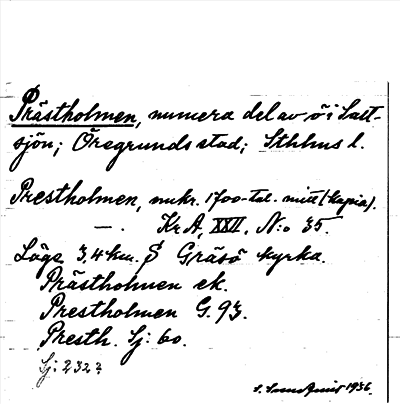 Prästholmen, numera del av ö i Salt-
sjön; Öregrunds stad; Sthlms l.
Prestholmen, mkr. 1700-tal. mitt (kopia).
— . Kr A, XXII, N:o 35.
Läge 3,4 km. S Gräsö kyrka.
Prästholmen ek.
Prestholmen G. 93.
Presth. Sj: 60.
Sj: 232?
1936.